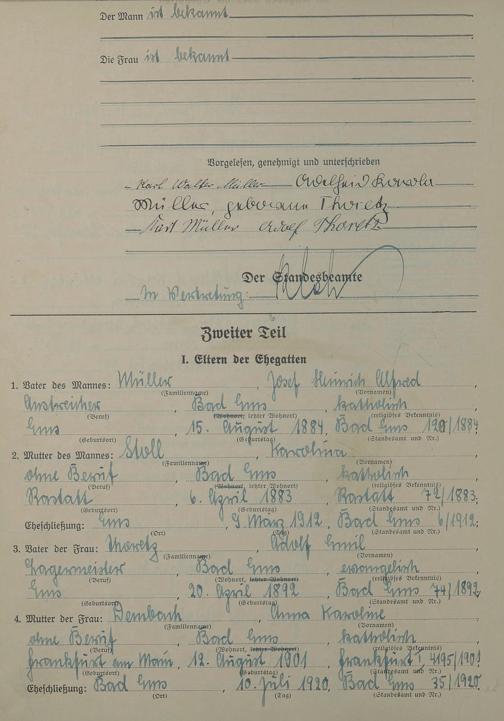 Der Mann ist bekannt
Die Frau ist bekannt
Vorgelesen, genehmigt und unterschrieben
Karl Walter Müller Adelheid Karola
Müller, geborene Thoretz
Karl Müller Adolf Thoretz
Der Standesbeamte
In Vertretung:
Zweiter Teil
I. Eltern der Ehegatten
1. Vater des Mannes: Müller, Josef Heinrich Alfred
(Familienname) (Vornamen)
Anstreicher, Bad Ems, katholisch
(Beruf) (Wohnort, letzter Wohnort) (religiöses Bekenntnis)
Ems, 15. August 1884, Bad Ems 120/1884
(Geburtsort) (Geburtstag) (Standesamt und Nr.)
2. Mutter des Mannes: Stoll, Karolina
(Familienname) (Vornamen)
ohne Beruf, Bad Ems, katholisch
(Beruf) (Wohnort, letzter Wohnort) (religiöses Bekenntnis)
Rastatt, 6. April 1883, Rastatt 72/1883.
(Geburtsort) (Geburtstag) (Standesamt und Nr.)
Eheschließung: Ems, 9. März 1912, Bad Ems 6/1912.
(Ort) (Tag) (Standesamt und Nr.)
3. Vater der Frau: Thoretz, Adolf Emil
(Familienname) (Vornamen)
Lagermeister, Bad Ems, evangelisch
(Beruf) (Wohnort, letzter Wohnort) (religiöses Bekenntnis)
Ems, 20. April 1892, Bad Ems 74/1892
(Geburtsort) (Geburtstag) (Standesamt und Nr.)
4. Mutter der Frau: Dembach, Anna Karoline
(Familienname) (Vornamen)
ohne Beruf, Bad Ems, katholisch
(Beruf) (Wohnort, letzter Wohnort) (religiöses Bekenntnis)
Frankfurt am Main, 12. August 1901, Frankfurt I, 4195/1901
(Geburtsort) (Geburtstag) (Standesamt und Nr.)
Eheschließung: Bad Ems, 10. Juli 1920, Bad Ems 35/1920
(Ort) (Tag) (Standesamt und Nr.)